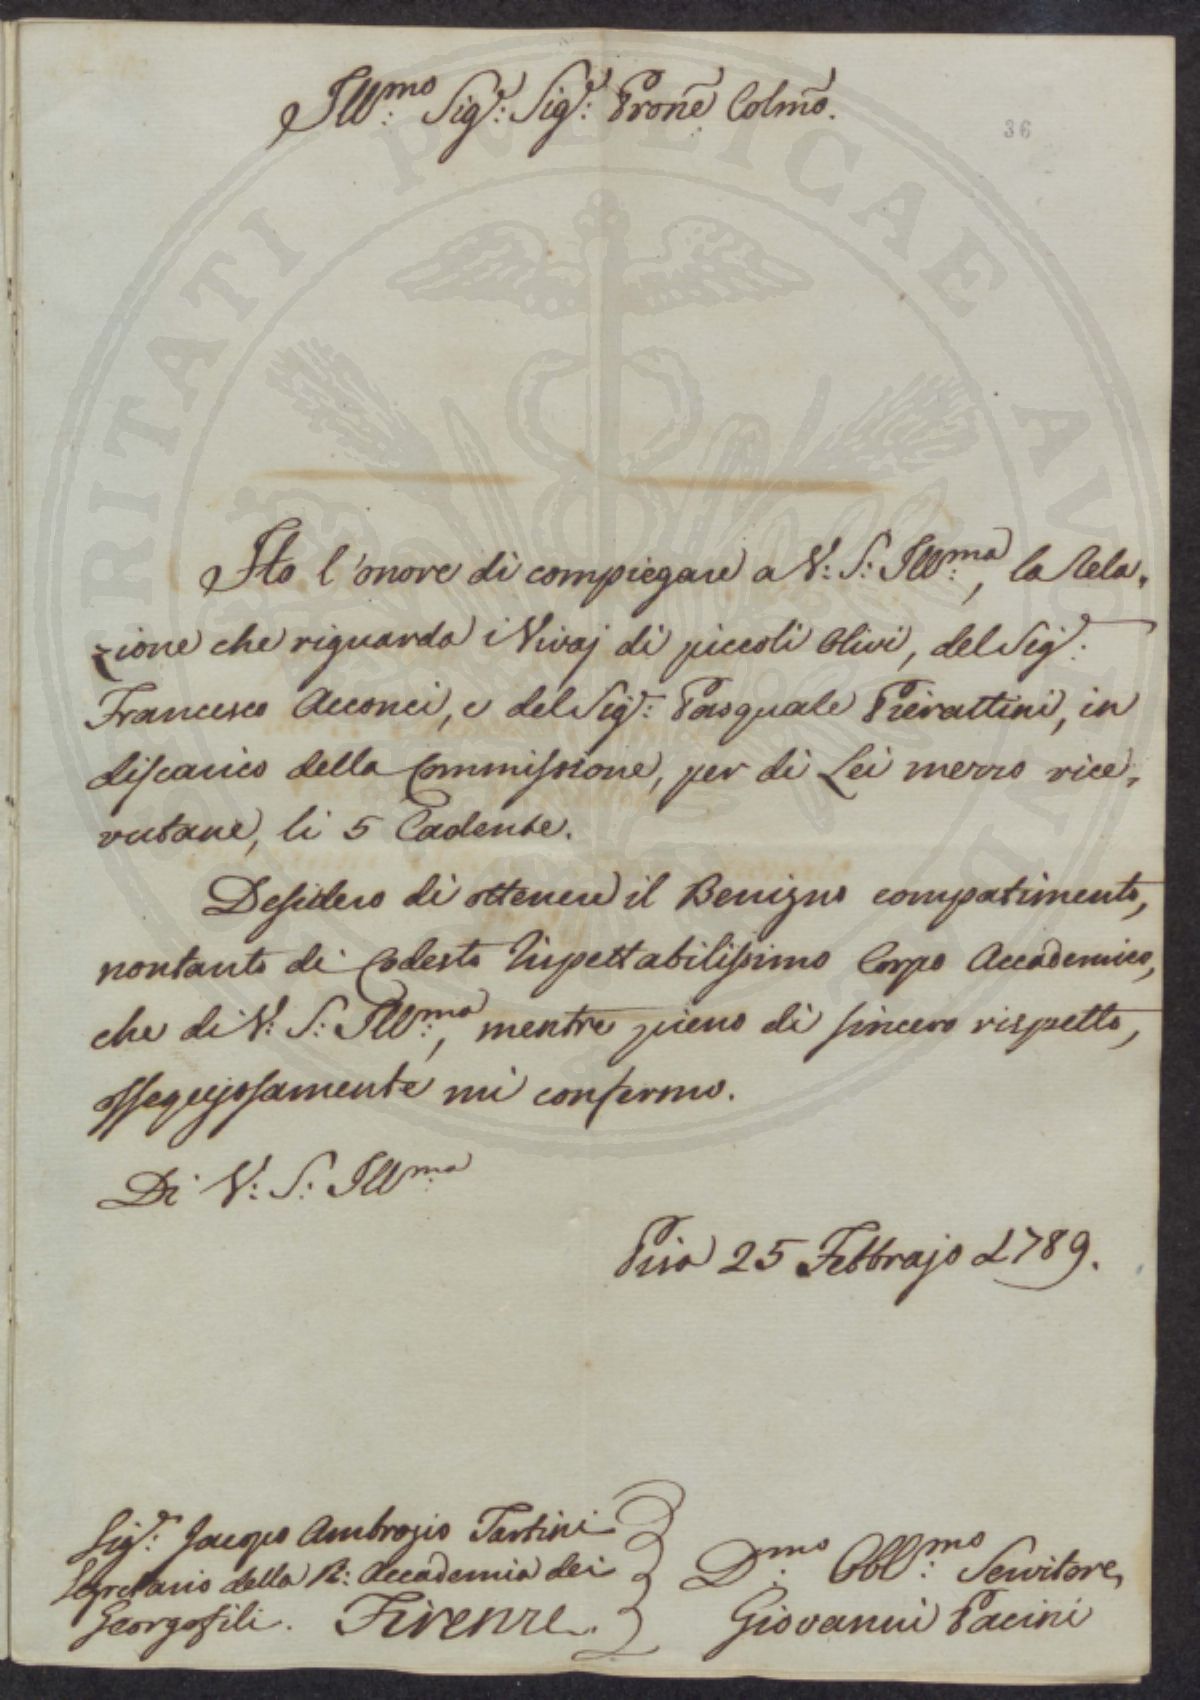 Ill:mo Sig:r Sig:r Prone Colmo.
36
Ho l'onore di compiegare a V: S: Ill:ma, la Rela-
zione che riguarda i Vivaj di piccoli Olivi, del Sig:r
Francesco Acconci, e del Sig:r Pasquale Pierattini, in
discarico della Commissione, per di Lei mezzo rice-
vutane, li 5 Cadente.
Desidero di ottenere il Benigno compatimento,
nontanto di Codesto Rispettabilissimo Corpo Accademico,
che di V: S: Ill:ma, mentre pieno di sincero rispetto,
ossequjosamente mi confermo.
Di V: S: Ill:ma
Pisa 25 Febbrajo 1789.
Sig:r Jacopo Ambrogio Tartini
Segretario della R: Accademia dei
Georgofili. Firenze.
D:mo Obbl:mo Servitore,
Giovanni Pacini